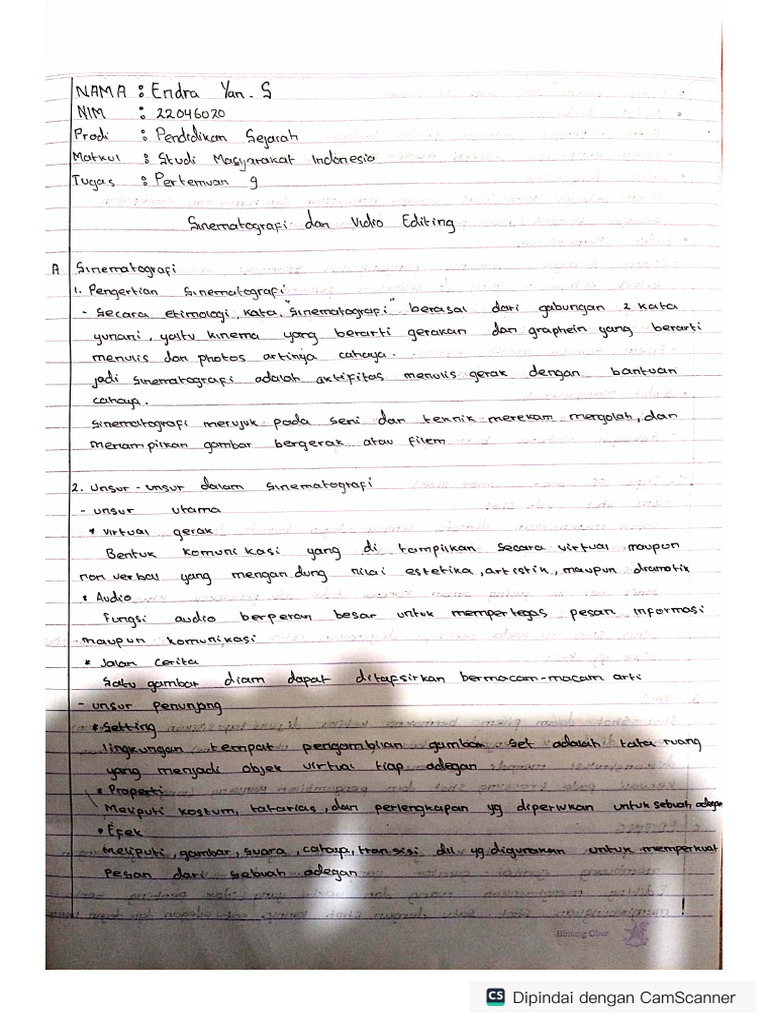 NAMA : Endra Yan. S
NIM : 22046020
Prodi : Pendidikan Sejarah
Matkul : Studi Masyarakat Indonesia
Tugas : Pertemuan 9
Sinematografi dan Vidio Editing
A Sinematografi
1. Pengertian Sinematografi
- Secara etimologi, kata "Sinematografi" berasal dari gabungan 2 kata
yunani, yaitu kinema yang berarti gerakan dan graphein yang berarti
menulis dan photos artinya cahaya.
jadi sinematografi adalah aktifitas menulis gerak dengan bantuan
cahaya.
Sinematografi merujuk pada seni dan teknik merekam mengolah, dan
menampilkan gambar bergerak atau filem
2. Unsur-unsur dalam sinematografi
- unsur utama
* virtual gerak
Bentuk komunikasi yang di tampilkan secara virtual maupun
non verbal yang mengandung nilai estetika, artistik, maupun dramatik
* Audio
Fungsi audio berperan besar untuk mempertegas pesan informasi
maupun komunikasi
* Jalan cerita
Satu gambar diam dapat ditafsirkan bermacam-macam arti
- unsur penunjang
* Setting
lingkungan tempat pengambilan gambar set adalah tata ruang
yang menjadi objek virtual tiap adegan
* Properti
Meliputi kostum, tatarias, dan perlengkapan yg diperlukan untuk sebuah adegan
* Efek
Meliputi, gambar, suara, cahaya, transisi dll yg digunakan untuk memperkuat
pesan dari sebuah adegan
Bintang Obor
CS Dipindai dengan CamScanner